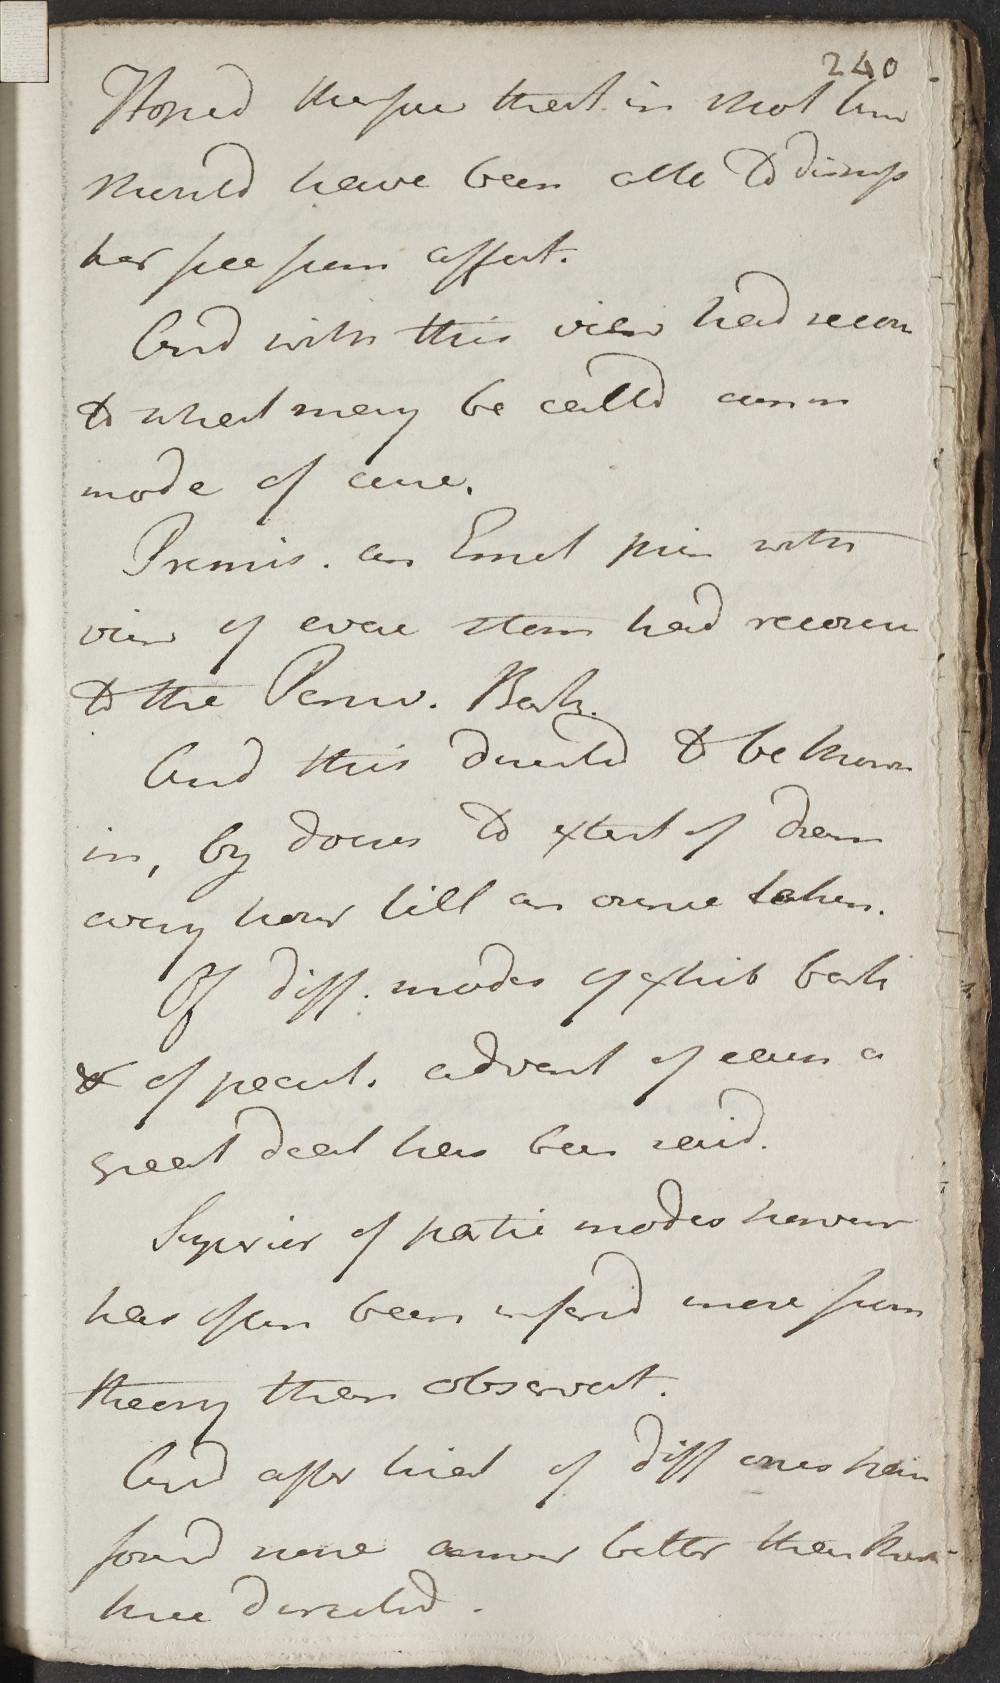 240
Hoped therefore that in short time
should have been able to dismiss
her free from affect.
And with this view had recour
to what may be calld comm
mode of cure.
Premis. an Emet prin with
view of evac stom had recour
to the Peruv. Bark.
And this directd to be thrown
in, by doses to extent of dram
every hour till an ounce taken.
Of diff. modes of exhib bark
& of peculi. advant of each a
great deal has been said.
Superior of partic modes however
has often been inferd more from
theory than observat.
And after trial of diff ones have
found none answer better than that
here directed.